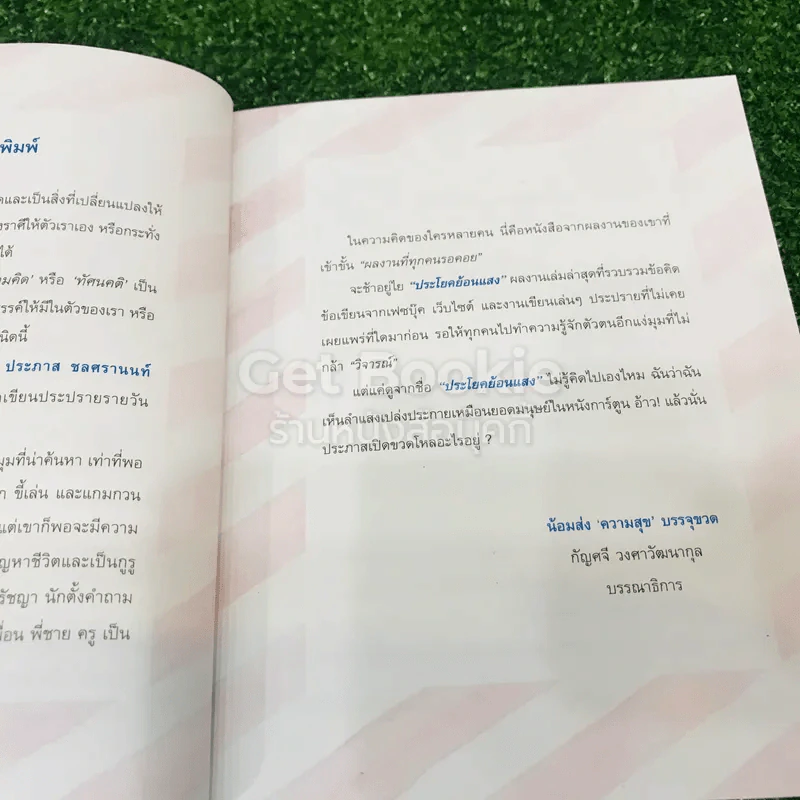 พิมพ์
และเป็นสิ่งที่เปลี่ยนแปลงให้
ราศีให้ตัวเราเอง หรือกระทั่ง
ได้
มคิด’ หรือ ‘ทัศนคติ’ เป็น
รรค์ให้มีในตัวของเรา หรือ
นิดนี้
ประภาส ชลศรานนท์
เขียนประปรายรายวัน
มุมที่น่าค้นหา เท่าที่พอ
ขี้เล่น และแกมกวน
แต่เขาก็พอจะมีความ
ญหาชีวิตและเป็นกูรู
รัชญา นักตั้งคำถาม
พื่อน พี่ชาย ครู เป็น
ในความคิดของใครหลายคน นี่คือหนังสือจากผลงานของเขาที่
เข้าขั้น “ผลงานที่ทุกคนรอคอย”
จะช้าอยู่ไย “ประโยคย้อนแสง” ผลงานเล่มล่าสุดที่รวบรวมข้อคิด
ข้อเขียนจากเฟซบุ๊ค เว็บไซต์ และงานเขียนเล่นๆ ประปรายที่ไม่เคย
เผยแพร่ที่ใดมาก่อน รอให้ทุกคนไปทำความรู้จักตัวตนอีกแง่มุมที่ไม่
กล้า “วิจารณ์”
แต่แค่ดูจากชื่อ “ประโยคย้อนแสง” ไม่รู้คิดไปเองไหม ฉันว่าฉัน
เห็นลำแสงเปล่งประกายเหมือนยอดมนุษย์ในหนังการ์ตูน อ้าว! แล้วนั่น
ประภาสเปิดขวดโหลอะไรอยู่ ?
น้อมส่ง ‘ความสุข’ บรรจุขวด
กัญศจี วงศาวัฒนากุล
บรรณาธิการ
Get Bookie
ร้านหนังสือบุคกี้